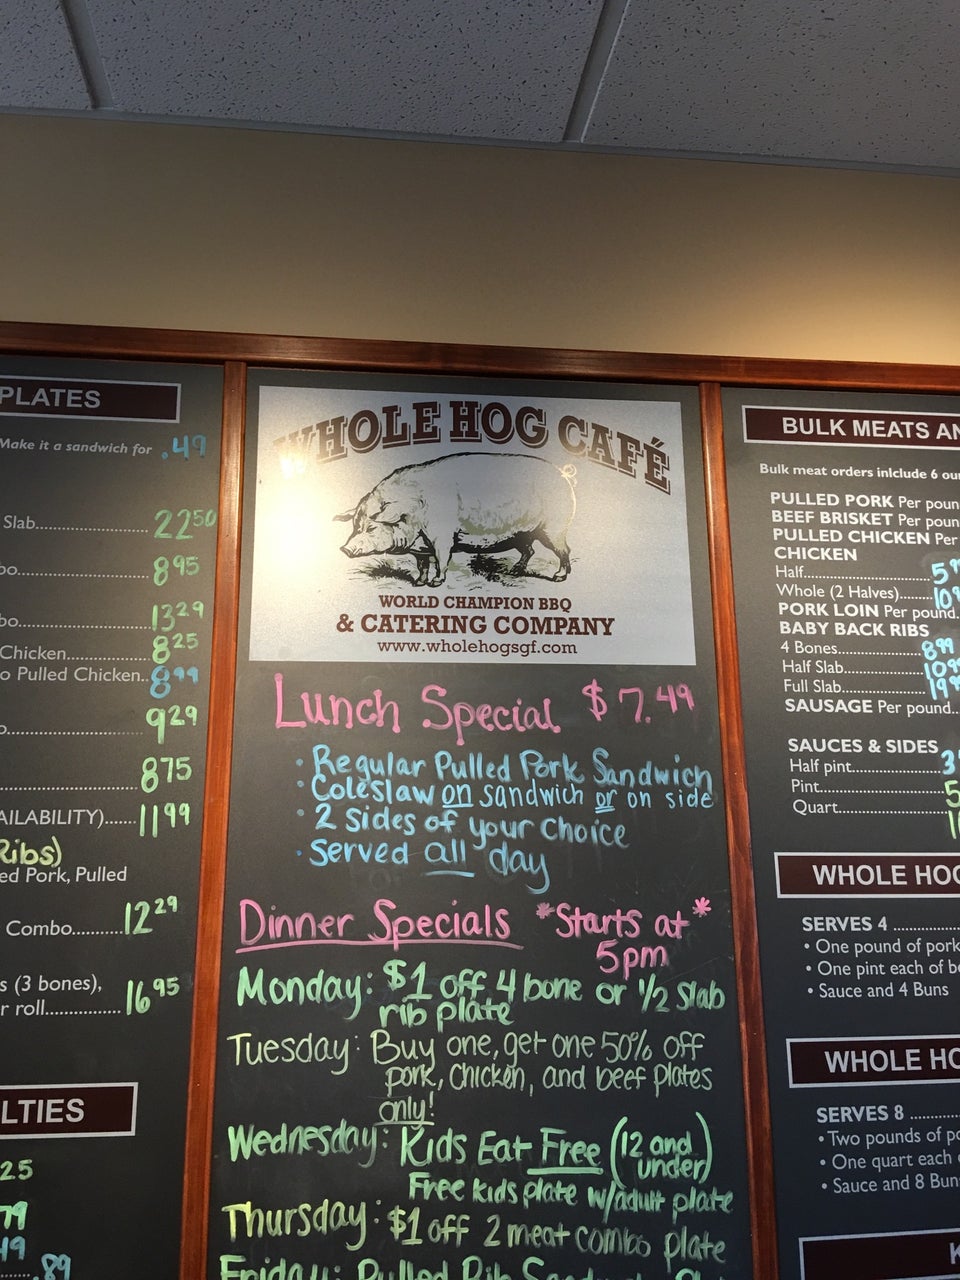 PLATES
Make it a sandwich for .49
Slab 22 50
8 95
13 29
Chicken 8 25
o Pulled Chicken 8 99
9 29
8 75
AILABILITY) 11 99
Ribs)
ed Pork, Pulled
Combo 12 29
s (3 bones),
r roll 16 95
LTIES
25
79
49
.89
WHOLE HOG CAFÉ
WORLD CHAMPION BBQ
& CATERING COMPANY
www.wholehogsgf.com
Lunch Special $7.49
• Regular Pulled Pork Sandwich
• Coleslaw on sandwich or on side
• 2 sides of your choice
• Served all day
Dinner Specials *Starts at*
5pm
Monday: $1 off 4 bone or 1/2 slab
rib plate
Tuesday: Buy one, get one 50% off
pork, chicken, and beef plates
only!
Wednesday: Kids Eat Free (12 and
under)
Free kids plate w/adult plate
Thursday: $1 off 2 meat combo plate
Friday: Pulled Rib
BULK MEATS AN
Bulk meat orders inlclude 6 ou
PULLED PORK Per poun
BEEF BRISKET Per poun
PULLED CHICKEN Per
CHICKEN
Half 5
Whole (2 Halves) 10
PORK LOIN Per pound.
BABY BACK RIBS
4 Bones 8 99
Half Slab 10
Full Slab 19
SAUSAGE Per pound..
SAUCES & SIDES
Half pint 3
Pint 5
Quart
WHOLE HOG
SERVES 4
• One pound of pork
• One pint each of be
• Sauce and 4 Buns
WHOLE HO
SERVES 8
• Two pounds of po
• One quart each
• Sauce and 8 Bun
K